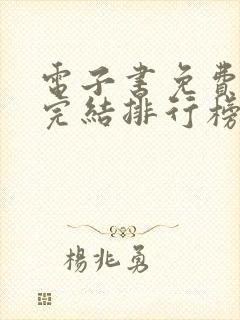 電子書免費
完結排行榜
楊兆勇